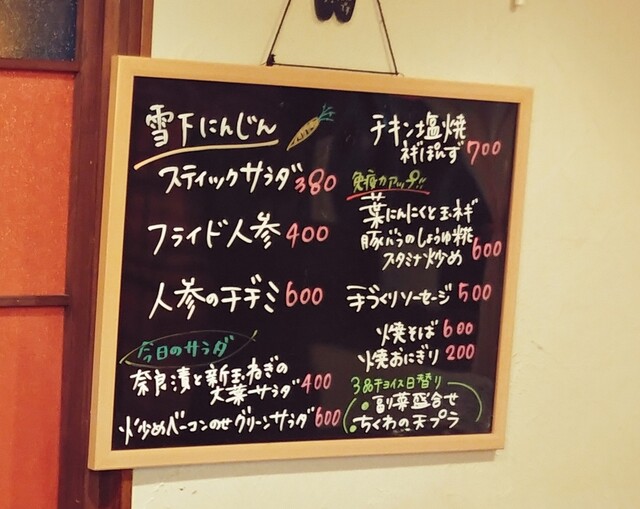 雪下にんじん
スティックサラダ 380
フライド人参 400
人参のチヂミ 600
今日のサラダ
奈良漬と新玉ねぎの
大葉サラダ 400
炒めベーコンのせグリーンサラダ 600
チキン塩焼
ネギぽんず 700
免疫力アップ!!
葉にんにくと玉ネギ
豚バラのしょうゆ糀
スタミナ炒め 600
手づくりソーセージ 500
焼そば 600
焼おにぎり 200
3品チョイス日替り
副菜盛合せ
ちくわの天プラ